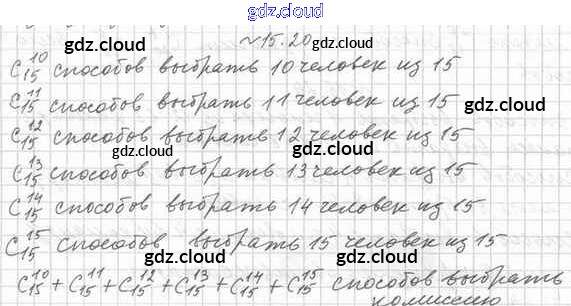 gdz.cloud
№15.20
gdz.cloud gdz.cloud
C₁₅¹⁰ способов выбрать 10 человек из 15
C₁₅¹¹ способов выбрать 11 человек из 15
gdz.cloud gdz.cloud
C₁₅¹² способов выбрать 12 человек из 15
gdz.cloud gdz.cloud
C₁₅¹³ способов выбрать 13 человек из 15
C₁₅¹⁴ способов выбрать 14 человек из 15
gdz.cloud gdz.cloud
C₁₅¹⁵ способов выбрать 15 человек из 15
gdz.cloud gdz.cloud
C₁₅¹⁰ + C₁₅¹¹ + C₁₅¹² + C₁₅¹³ + C₁₅¹⁴ + C₁₅¹⁵ способов выбрать
комиссию
gdz.cloud